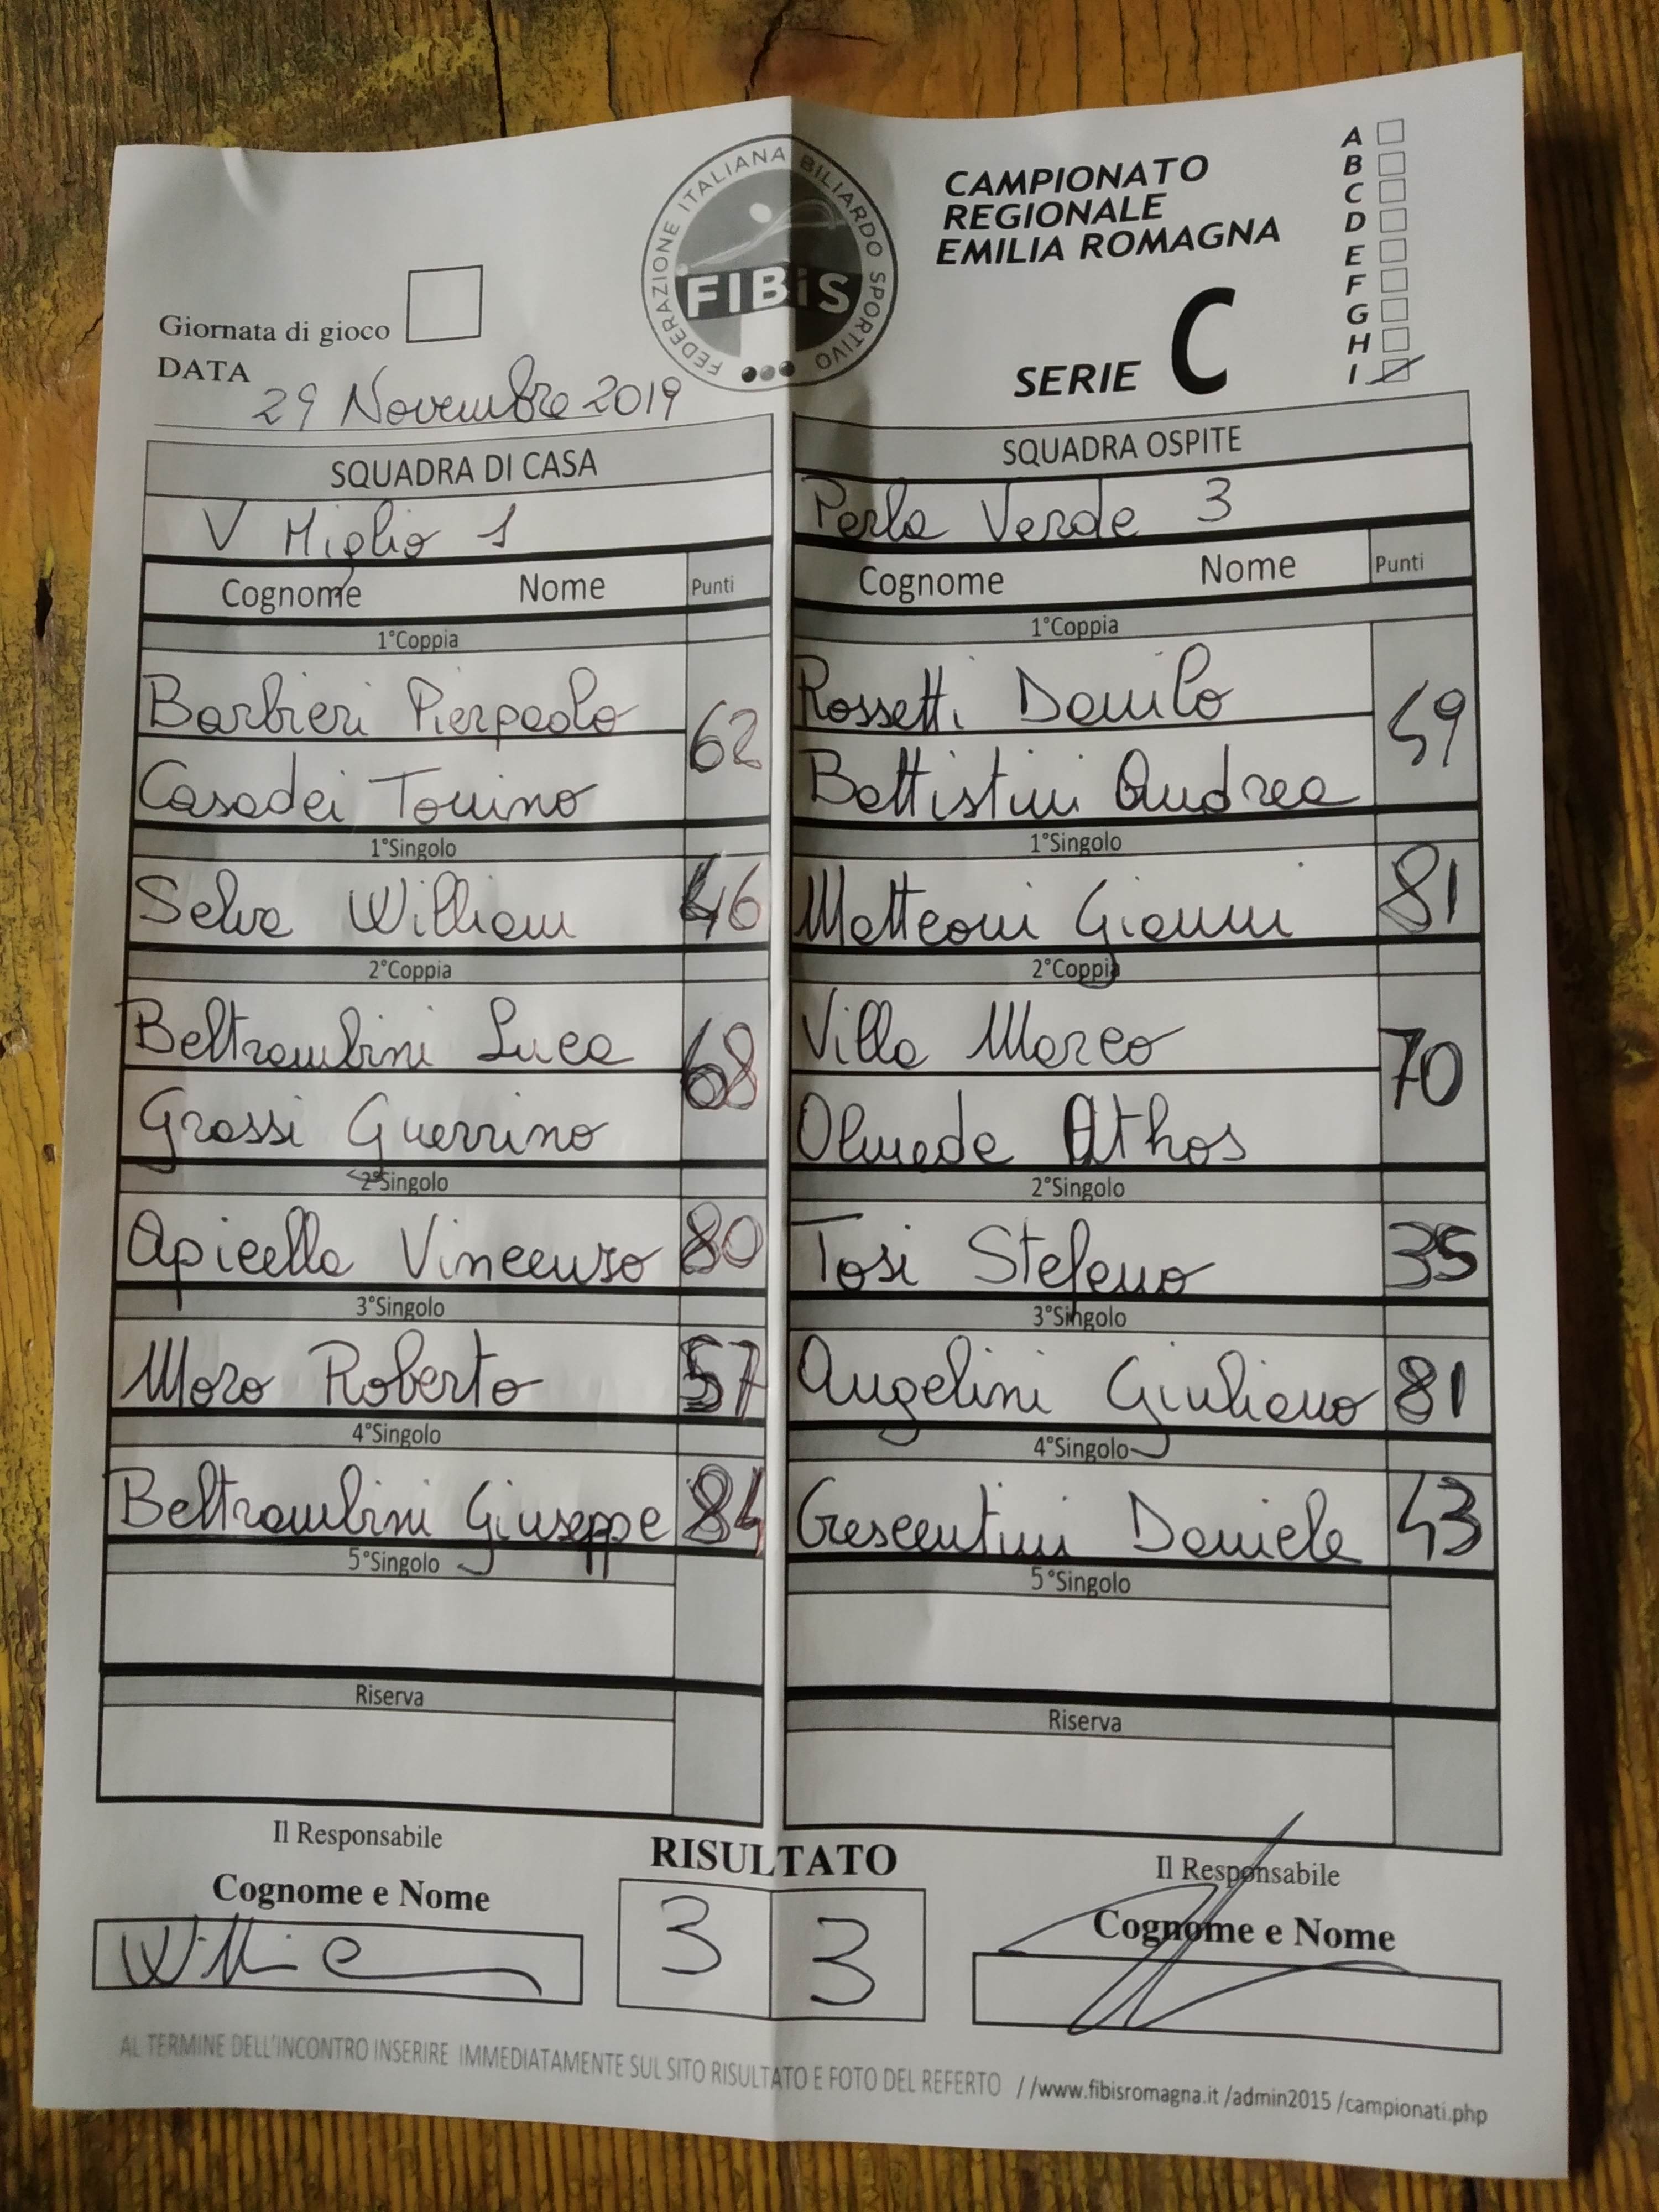 FEDERAZIONE ITALIANA BILIARDO SPORTIVO
FIBiS
CAMPIONATO
REGIONALE
EMILIA ROMAGNA
SERIE C
A
B
C
D
E
F
G
H
I
Giornata di gioco
DATA 29 Novembre 2019
SQUADRA DI CASA
V Miglio 1
Cognome Nome Punti
1°Coppia
Barbieri Pierpaolo
62
Casadei Tonino
1°Singolo
Selva William 46
2°Coppia
Beltrambini Luca
68
Grossi Guerrino
2°Singolo
Apicella Vincenzo 80
3°Singolo
Moro Roberto 57
4°Singolo
Beltrambini Giuseppe 84
5°Singolo
Riserva
SQUADRA OSPITE
Perla Verde 3
Cognome Nome Punti
1°Coppia
Rossetti Danilo
59
Battistini Andrea
1°Singolo
Matteoni Gianni 81
2°Coppia
Villa Marco
70
Olmeda Athos
2°Singolo
Tosi Stefano 35
3°Singolo
Angelini Giuliano 81
4°Singolo
Crescentini Daniele 43
5°Singolo
Riserva
Il Responsabile
Cognome e Nome
RISULTATO
3 3
Il Responsabile
Cognome e Nome
AL TERMINE DELL'INCONTRO INSERIRE IMMEDIATAMENTE SUL SITO RISULTATO E FOTO DEL REFERTO //www.fibisromagna.it /admin2015 /campionati.php